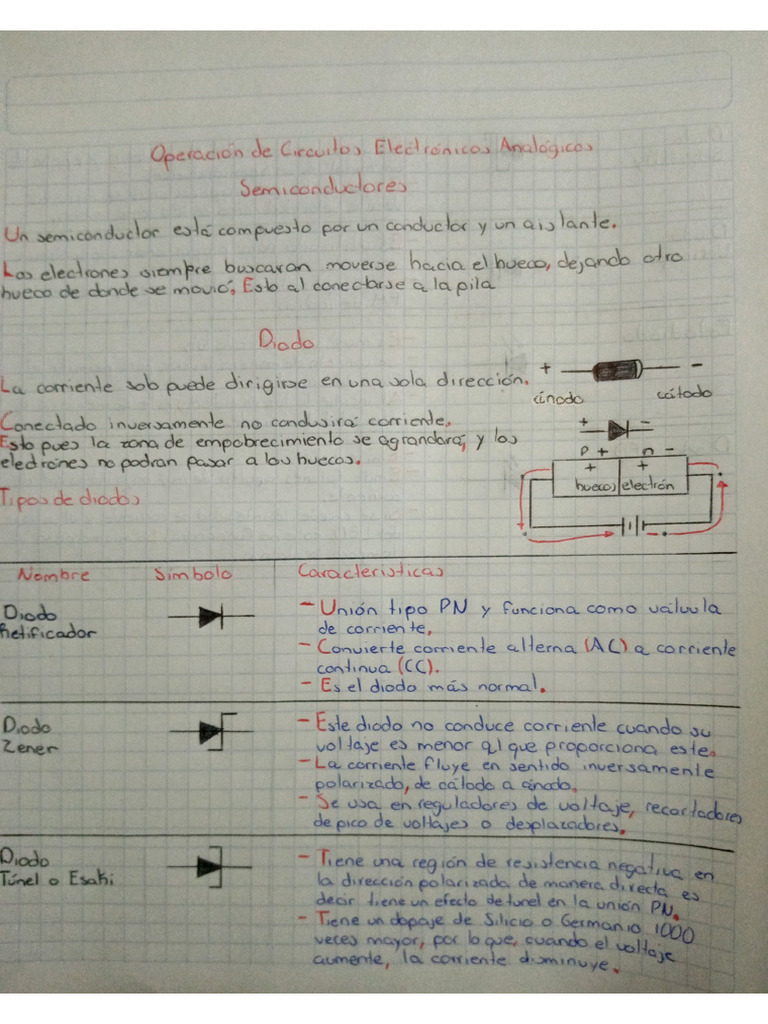 Operación de Circuitos Electrónicos Analógicos
Semiconductores
Un semiconductor está compuesto por un conductor y un aislante.
Los electrones siempre buscaran moverse hacia el hueco, dejando otro
hueco de donde se movió; Esto al conectarse a la pila
Diodo
La corriente solo puede dirigirse en una sola dirección.
+ -
ánodo cátodo
Conectado inversamente no condusirá corriente.
Esto pues la zona de empobrecimiento se agrandará, y los
electrones no podran pasar a los huecos.
+ -
P + n -
+ +
huecos electrón
Tipos de diodos
Nombre Simbolo Caracteristicas
Diodo
Retificador
- Unión tipo PN y funciona como válvula
de corriente.
- Convierte corriente alterna (AC) a corriente
continua (CC).
- Es el diodo más normal.
Diodo
Zener
- Este diodo no conduce corriente cuando su
voltaje es menor al que proporciona este.
- La corriente fluye en sentido inversamente
polarizado, de cátodo a ánodo.
- Se usa en reguladores de voltaje, recortadores
de pico de voltajes o desplazadores.
Diodo
Túnel o Esaki
- Tiene una región de resistencia negativa en
la dirección polarizada de manera directa es
decir tiene un efecto de tunel en la unión PN.
- Tiene un dopaje de Silicio o Germanio 1000
veces mayor, por lo que, cuando el voltaje
aumente, la corriente disminuye.